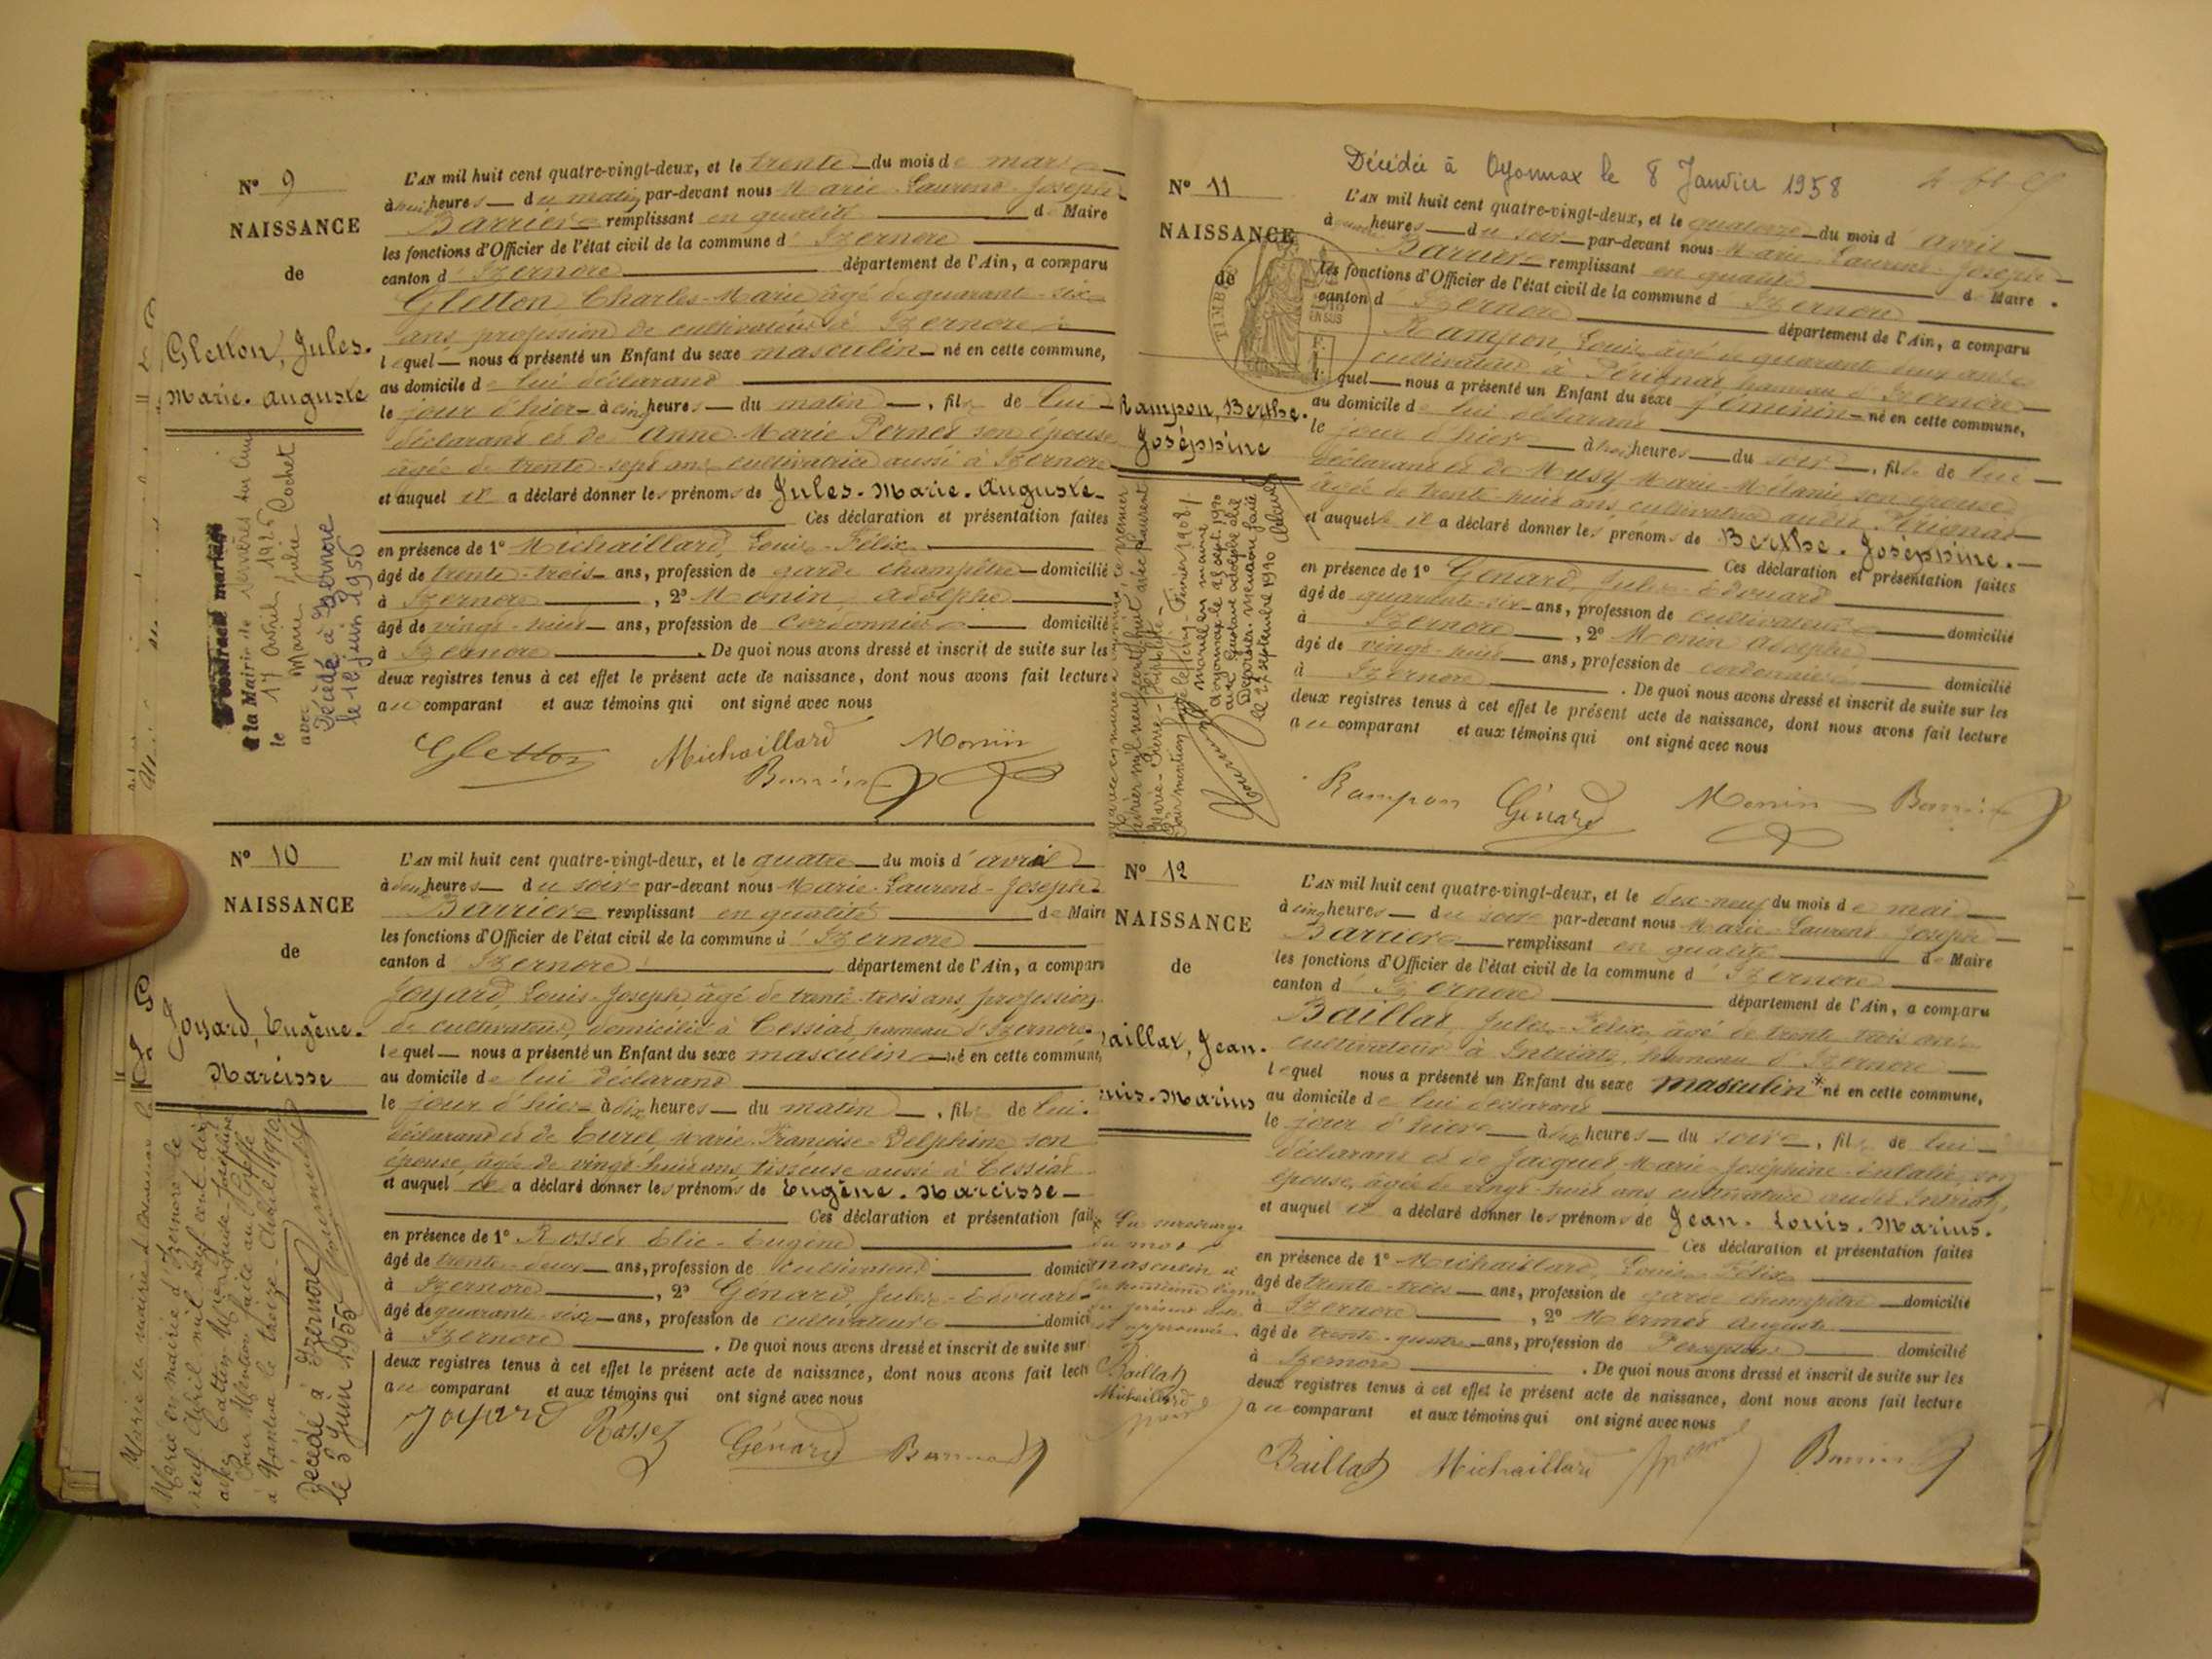 N° 9
NAISSANCE
de
Gletton, Jules.
Marie. Auguste
a contracté mariage
à la Mairie de
le 17 avril 1926
avec Marie Julie Cochet
Décédé à Izernore
le 12 juin 1956
L'AN mil huit cent quatre-vingt-deux, et le trente du mois de mars
à huit heures du matin par-devant nous Marie-Laurent-Joseph
Barrier remplissant en qualité de Maire
les fonctions d'Officier de l'état civil de la commune d'Izernore
canton d'Izernore département de l'Ain, a comparu
Gletton Charles-Marie âgé de quarante-six
ans profession de cultivateur à Izernore
lequel nous a présenté un Enfant du sexe masculin né en cette commune,
au domicile de lui déclarant
le jour d'hier à cinq heures du matin, fils de lui
déclarant et de Anne-Marie Pernet son épouse
âgée de trente-sept ans cultivatrice aussi à Izernore
et auquel il a déclaré donner les prénoms de Jules-Marie-Auguste
Ces déclaration et présentation faites
en présence de 1° Michaillard, Louis-Félix
âgé de trente-trois ans, profession de garde champêtre domicilié
à Izernore, 2° Monin Adolphe
âgé de vingt-huit ans, profession de cordonnier domicilié
à Izernore. De quoi nous avons dressé et inscrit de suite sur les
deux registres tenus à cet effet le présent acte de naissance, dont nous avons fait lecture
au comparant et aux témoins qui ont signé avec nous
Gletton Michaillard Monin
Barrier
N° 10
NAISSANCE
de
Joyard, Eugène.
Narcisse
Marié en mairie d'Izernore le
neuf Avril mil neuf cent dix
avec Cattin
Pour Mention faite au Greffe
à Nantua le treize Avril 1910
Décédé à Izernore
le 3 Juin 1955
L'AN mil huit cent quatre-vingt-deux, et le quatre du mois d'avril
à deux heures du soir par-devant nous Marie-Laurent-Joseph
Barrier remplissant en qualité de Maire
les fonctions d'Officier de l'état civil de la commune d'Izernore
canton d'Izernore département de l'Ain, a comparu
Joyard, Louis-Joseph, âgé de trente-trois ans, profession
de cultivateur, domicilié à Cessiat, hameau d'Izernore
lequel nous a présenté un Enfant du sexe masculin né en cette commune,
au domicile de lui déclarant
le jour d'hier à dix heures du matin, fils de lui
déclarant et de Curel Marie-Françoise-Delphine son
épouse âgée de vingt-huit ans tisseuse aussi à Cessiat
et auquel il a déclaré donner les prénoms de Eugène-Narcisse
Ces déclaration et présentation fait
en présence de 1° Rosset Elie-Eugène
âgé de trente-deux ans, profession de cultivateur domici
à Izernore, 2° Génard, Jules-Edouard
âgé de quarante-six ans, profession de cultivateur domici
à Izernore. De quoi nous avons dressé et inscrit de suite sur
deux registres tenus à cet effet le présent acte de naissance, dont nous avons fait lect
au comparant et aux témoins qui ont signé avec nous
Joyard Rosset Génard Barrier
Décédée à Oyonnax le 8 Janvier 1958
N° 11
NAISSANCE
de
TIMBRE
EN SUS
Rampon, Berthe.
Joséphine
L'AN mil huit cent quatre-vingt-deux, et le quatorze du mois d'avril
à heures du soir par-devant nous Marie-Laurent-Joseph
Barrier remplissant en qualité de Maire
les fonctions d'Officier de l'état civil de la commune d'Izernore
canton d'Izernore département de l'Ain, a comparu
Rampon Louis âgé de quarante deux ans
cultivateur à Pérignat hameau d'Izernore
lequel nous a présenté un Enfant du sexe féminin né en cette commune,
au domicile de lui déclarant
le jour d'hier à heures du soir, fille de lui
déclarant et de Musy Marie-Mélanie son épouse
âgée de trente-huit ans, cultivatrice audit Pérignat
et auquel il a déclaré donner les prénoms de Berthe-Joséphine.
Ces déclaration et présentation faites
en présence de 1° Génard, Jules-Edouard
âgé de quarante-six ans, profession de cultivateur domicilié
à Izernore, 2° Monin Adolphe
âgé de vingt-huit ans, profession de cordonnier domicilié
à Izernore. De quoi nous avons dressé et inscrit de suite sur les
deux registres tenus à cet effet le présent acte de naissance, dont nous avons fait lecture
au comparant et aux témoins qui ont signé avec nous
Rampon Génard Monin Barrier
N° 12
NAISSANCE
de
aillat, Jean.
uis-Marius
L'AN mil huit cent quatre-vingt-deux, et le dix-neuf du mois de mai
à cinq heures du soir par-devant nous Marie-Laurent-Joseph
Barrier remplissant en qualité de Maire
les fonctions d'Officier de l'état civil de la commune d'Izernore
canton d'Izernore département de l'Ain, a comparu
Baillat, Jules-Félix, âgé de trente-trois ans
cultivateur à Intriat, hameau d'Izernore
lequel nous a présenté un Enfant du sexe masculin* né en cette commune,
au domicile de lui déclarant
le jour d'hier à dix heures du soir, fils de lui
déclarant et de Jacquet Marie-Joséphine-Eulalie, son
épouse, âgée de vingt-huit ans cultivatrice audit Intriat,
et auquel il a déclaré donner les prénoms de Jean-Louis-Marius.
Ces déclaration et présentation faites
en présence de 1° Michaillard, Louis-Félix
âgé de trente-trois ans, profession de garde champêtre domicilié
à Izernore, 2° Mermet Auguste
âgé de trente-quatre ans, profession de Percepteur domicilié
à Izernore. De quoi nous avons dressé et inscrit de suite sur les
deux registres tenus à cet effet le présent acte de naissance, dont nous avons fait lecture
au comparant et aux témoins qui ont signé avec nous
* La surcharge
du mot
masculin à
la huitième ligne
du présent acte
est approuvée.
Baillat
Michaillard
Baillat Michaillard Barrier